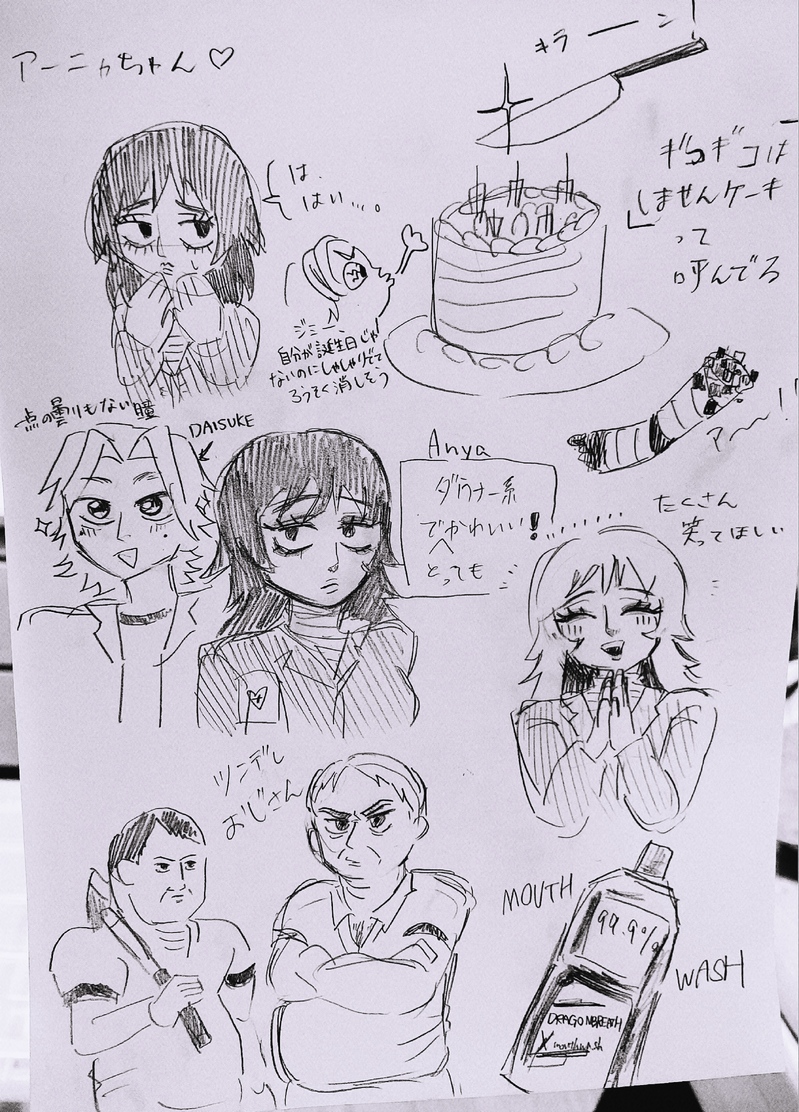 アーニャちゃん♡
キラーン
は、
はい…。
ギコギコは
しませんケーキ
って
呼んでろ
ジミー、
自分が誕生日じゃ
ないのにしゃしゃりでて
ろうそく消しそう
点の曇りもない瞳
DAISUKE
Anya
ダウナー系
でかわいい!
とっても
ア〜!!
たくさん
笑ってほしい
ツンデレ
おじさん
MOUTH
WASH
99.9%
DRAGONBREATH
X mouthwash